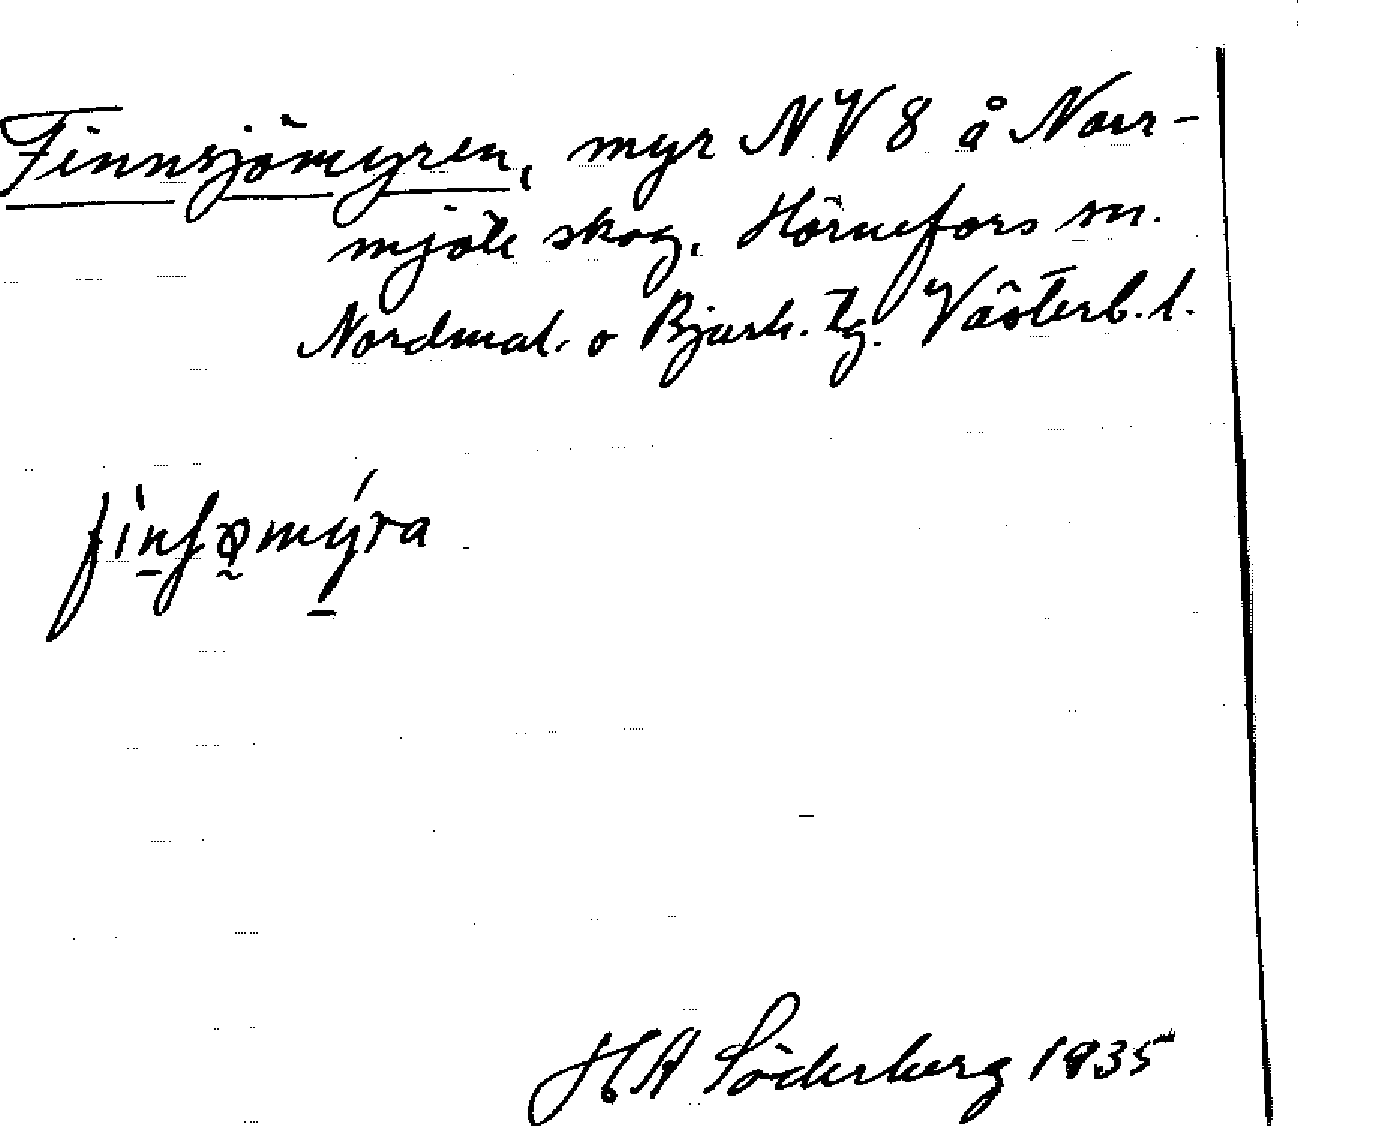 Finnsjömyren, myr NV 8 å Norr-
mjöle skog, Hörnefors sn.
Nordmal. o Bjurh. tg. Västerb. l.
finʃømýra
H A Söderberg 1935